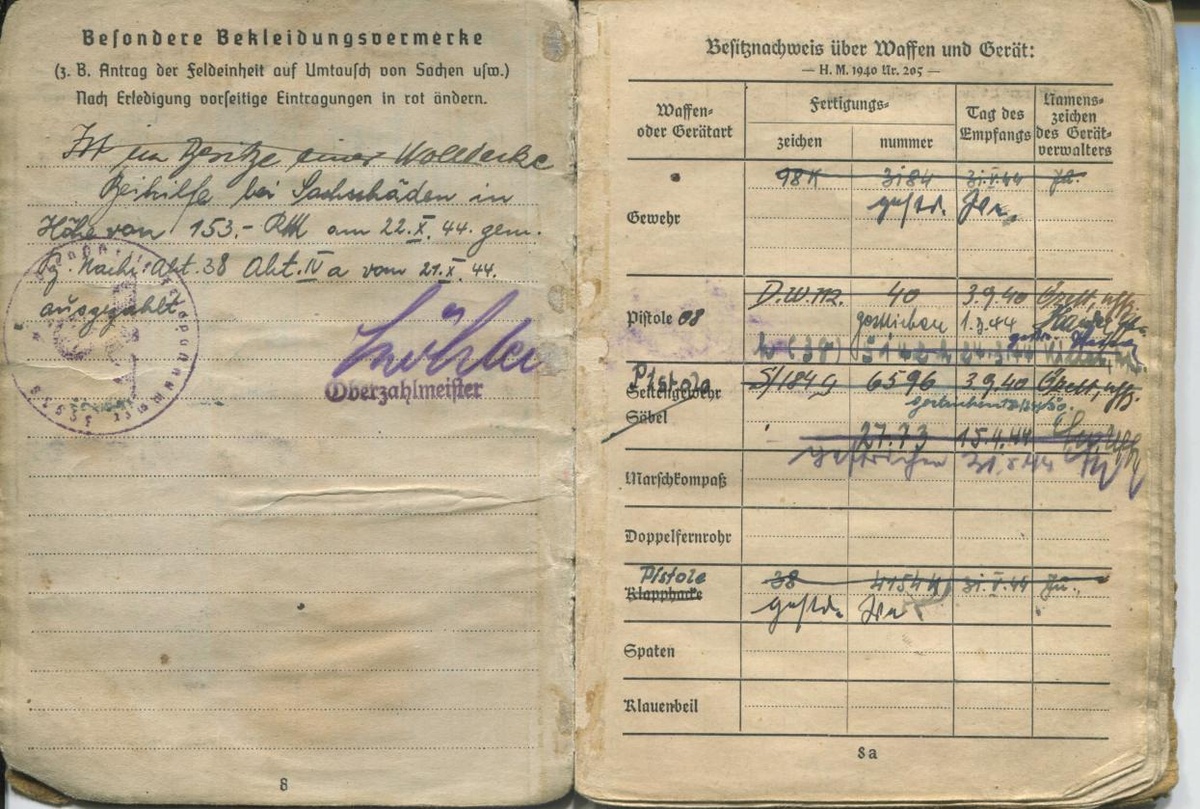 Besondere Bekleidungsvermerke
(z. B. Antrag der Feldeinheit auf Umtausch von Sachen usw.)
Nach Erledigung vorseitige Eintragungen in rot ändern.
Ist im Besitze einer Wolldecke
Beihilfe bei Sachschäden in
Höhe von 153.- RM am 22.X.44. gem.
Nachr. Abt. 38 Abt. IV a vom 21.X.44.
ausgezahlt
Oberzahlmeister
8
Besitznachweis über Waffen und Gerät:
— H. M. 1940 Nr. 205 —
Waffen- oder Gerätart
Fertigungs-
zeichen
nummer
Tag des Empfangs
Namens-zeichen des Gerät-verwalters
Gewehr
98K 3184 31.V.44
gestr.
Pistole 08
D.W.M. 40 3.9.40
gestrichen 1.3.44
Pistole
Seitengewehr
S/184g 6596 3.9.40
Säbel
2773 15.4.44
gestrichen 31.5.44
Marschkompaß
Doppelfernrohr
Pistole
38 4154 31.V.44
Klapphacke
gestr.
Spaten
Klauenbeil
8a